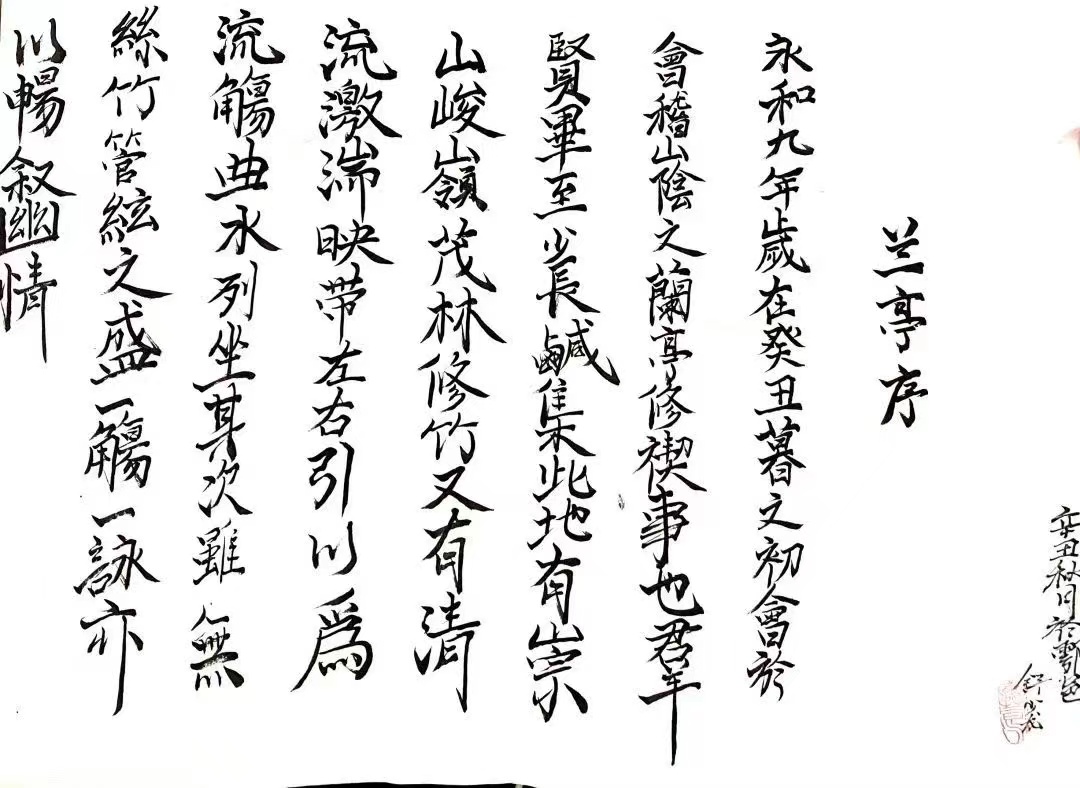 辛丑秋日於
兰亭序
永和九年歲在癸丑暮之初會於
會稽山陰之蘭亭修禊事也羣
賢畢至少長鹹集此地有崇
山峻嶺茂林修竹又有清
流激湍映带左右引以爲
流觴曲水列坐其次雖無
絲竹管絃之盛一觴一詠亦
以暢叙幽情